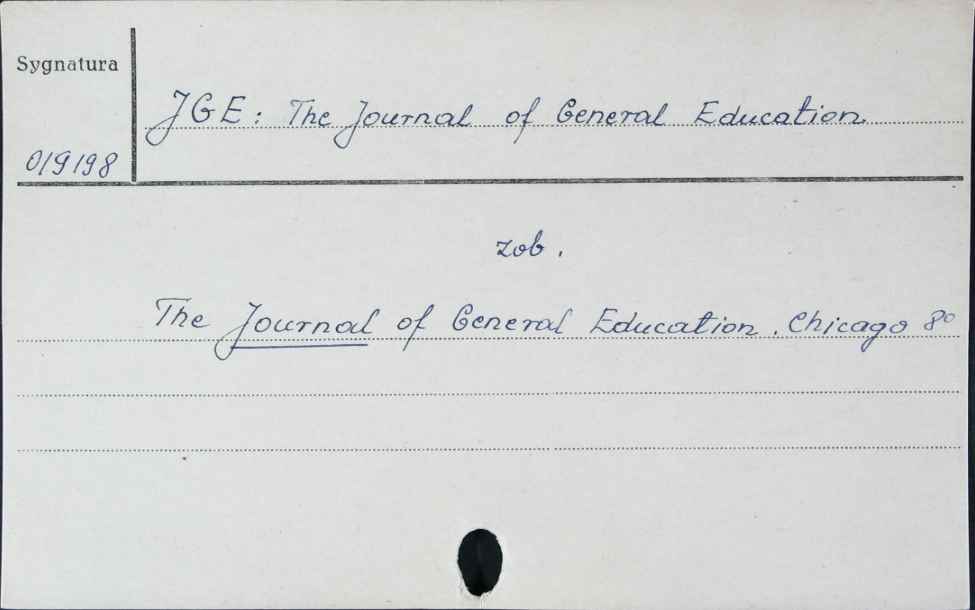 Sygnatura
JGE: The Journal of General Education.
019198
zob.
The Journal of General Education. Chicago 8°